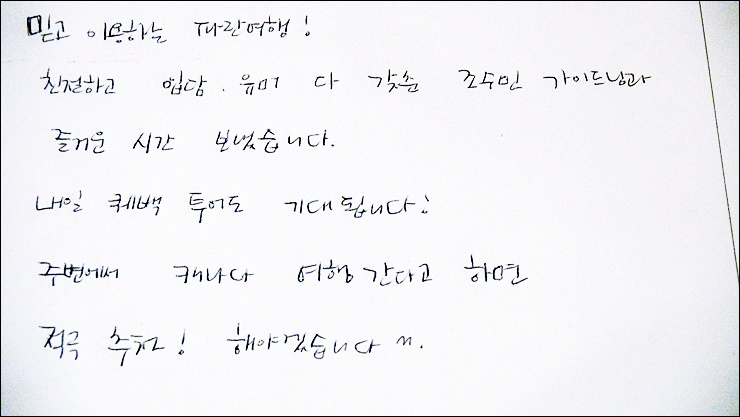 믿고 이용하는 파란여행!
친절하고 입담. 유머 다 갖춘 조수민 가이드님과
즐거운 시간 보냈습니다.
내일 퀘백 투어도 기대됩니다!
주변에서 캐나다 여행 간다고 하면
적극 추천! 해야겠습니다 ^^.